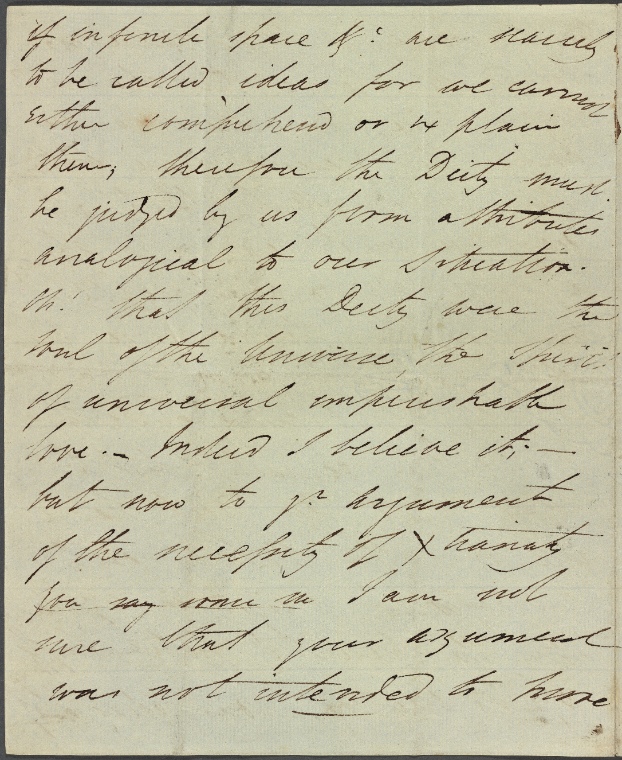 of infinite space &c: are scarcely
to be called ideas for we cannot
either comprehend or explain
them; therefore the Deity must
be judged by us from attributes
analogical to our situation.
Oh! that this Deity were the
soul of the Universe, the spirit
of universal imperishable
love. – Indeed I believe it; –
but now to yr. argument
of the necessity of Xtianity
I am not
sure that your argument
was not intended to have